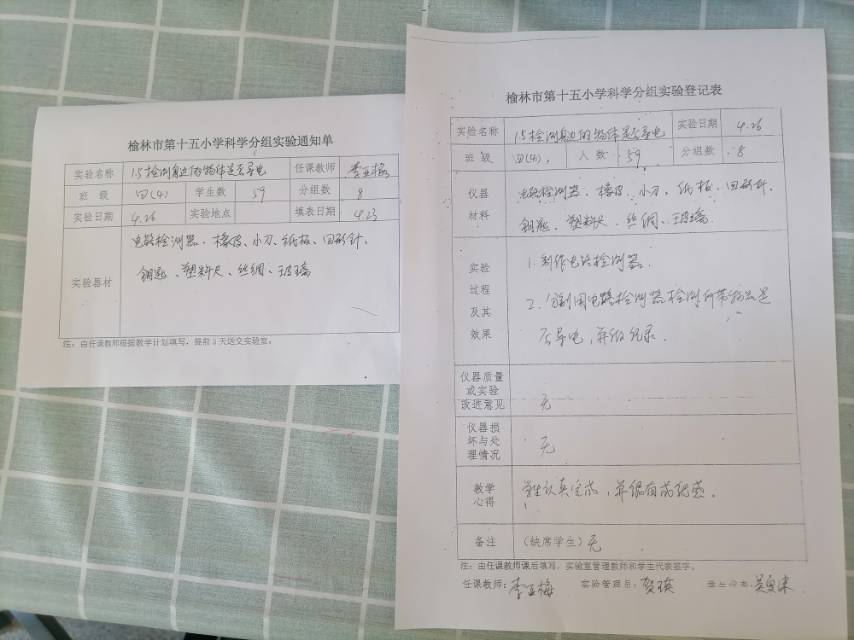 榆林市第十五小学科学分组实验通知单
实验名称 15检测身边的物体是否导电 任课教师
班 级 四(4) 学生数 59 分组数 8
实验日期 4.26 实验地点 填表日期 4.23
实验器材 电路检测器、橡皮、小刀、纸板、回形针、
钥匙、塑料尺、丝绸、玻璃
注:由任课教师根据教学计划填写,提前3天送交实验室。
榆林市第十五小学科学分组实验登记表
实验名称 15检测身边的物体是否导电 实验日期 4.26
班 级 四(4) 人 数 59 分组数 8
仪器
材料
电路检测器、橡皮、小刀、纸板、回形针、
钥匙、塑料尺、丝绸、玻璃
实验
过程
及其
效果
1.制作电路检测器.
2.分别用电路检测器检测所带物品是
否导电,并做纪录.
仪器质量
或实验
改进意见
无
仪器损
坏与处
理情况
无
教学
心得
学生认真完成,并
备注 (缺席学生)无
注:由任课教师课后填写,实验室管理教师和学生代表签字。
任课教师: 实验管理员: 学生代表: